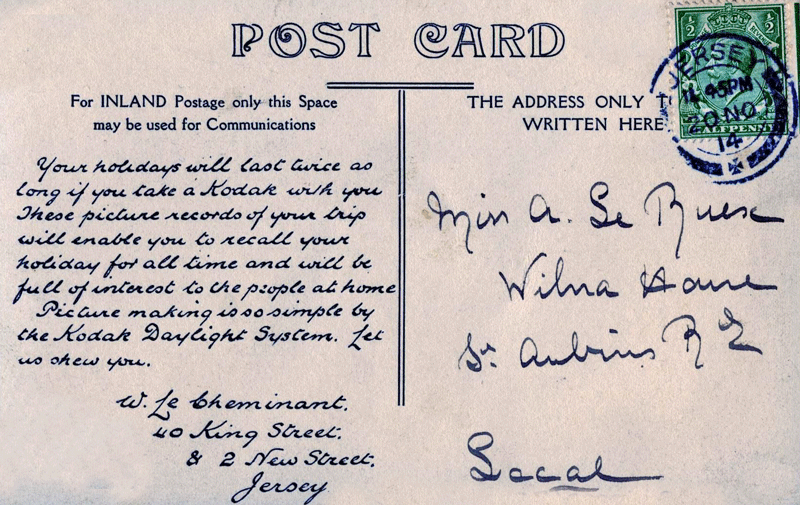 POST CARD
For INLAND Postage only this Space
may be used for Communications
THE ADDRESS ONLY
WRITTEN HERE
Your holidays will last twice as
long if you take a Kodak with you
These picture records of your trip
will enable you to recall your
holiday for all time and will be
full of interest to the people at home
Picture making is so simple by
the Kodak Daylight System. Let
us shew you.
W. Le Cheminant.
40 King Street.
& 2 New Street.
Jersey
½ ½
JERSEY
45PM
20 NO
14
HALFPENNY
Miss A. Le
Wilna House
St Aubins Rd
Local